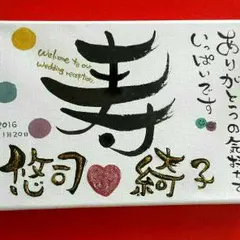 ありがとうの気持ちで
いっぱいです
Welcome to our
wedding reception
寿
2016
11月20日
悠司♥綺子